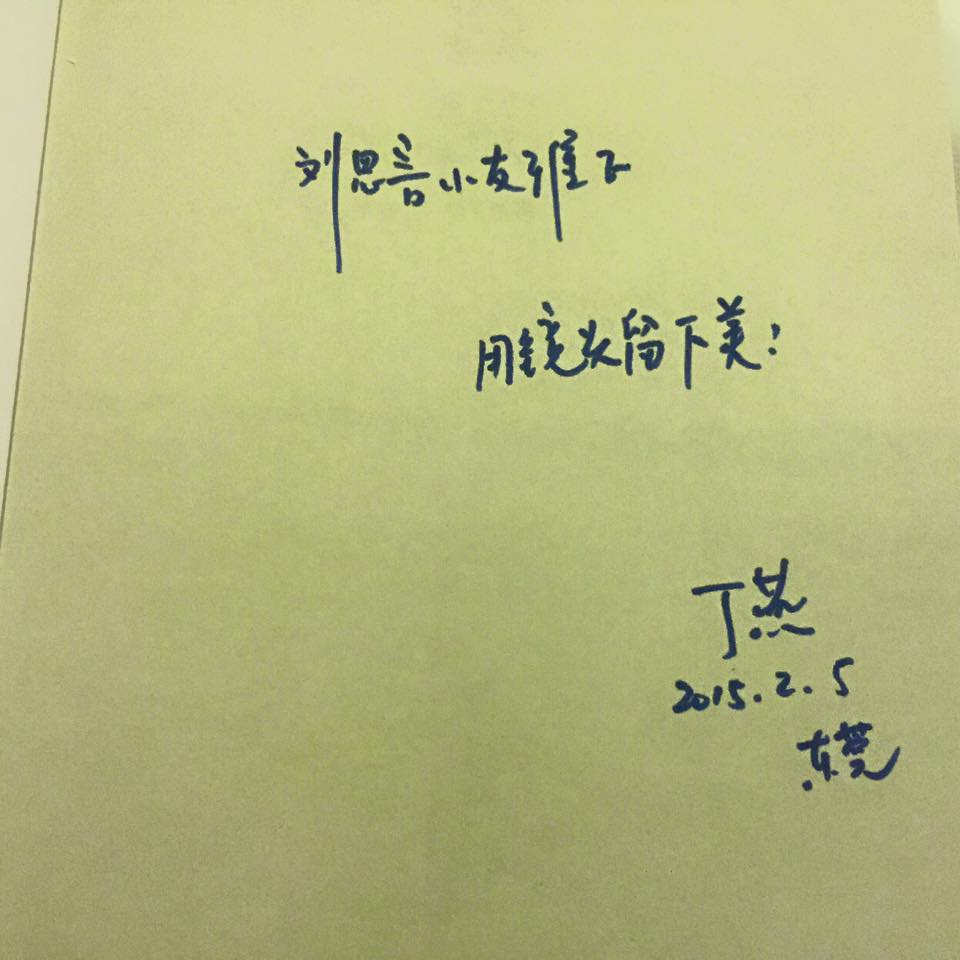 刘思言小友雅正
用镜头留下美!
丁燕
2015.2.5
东莞